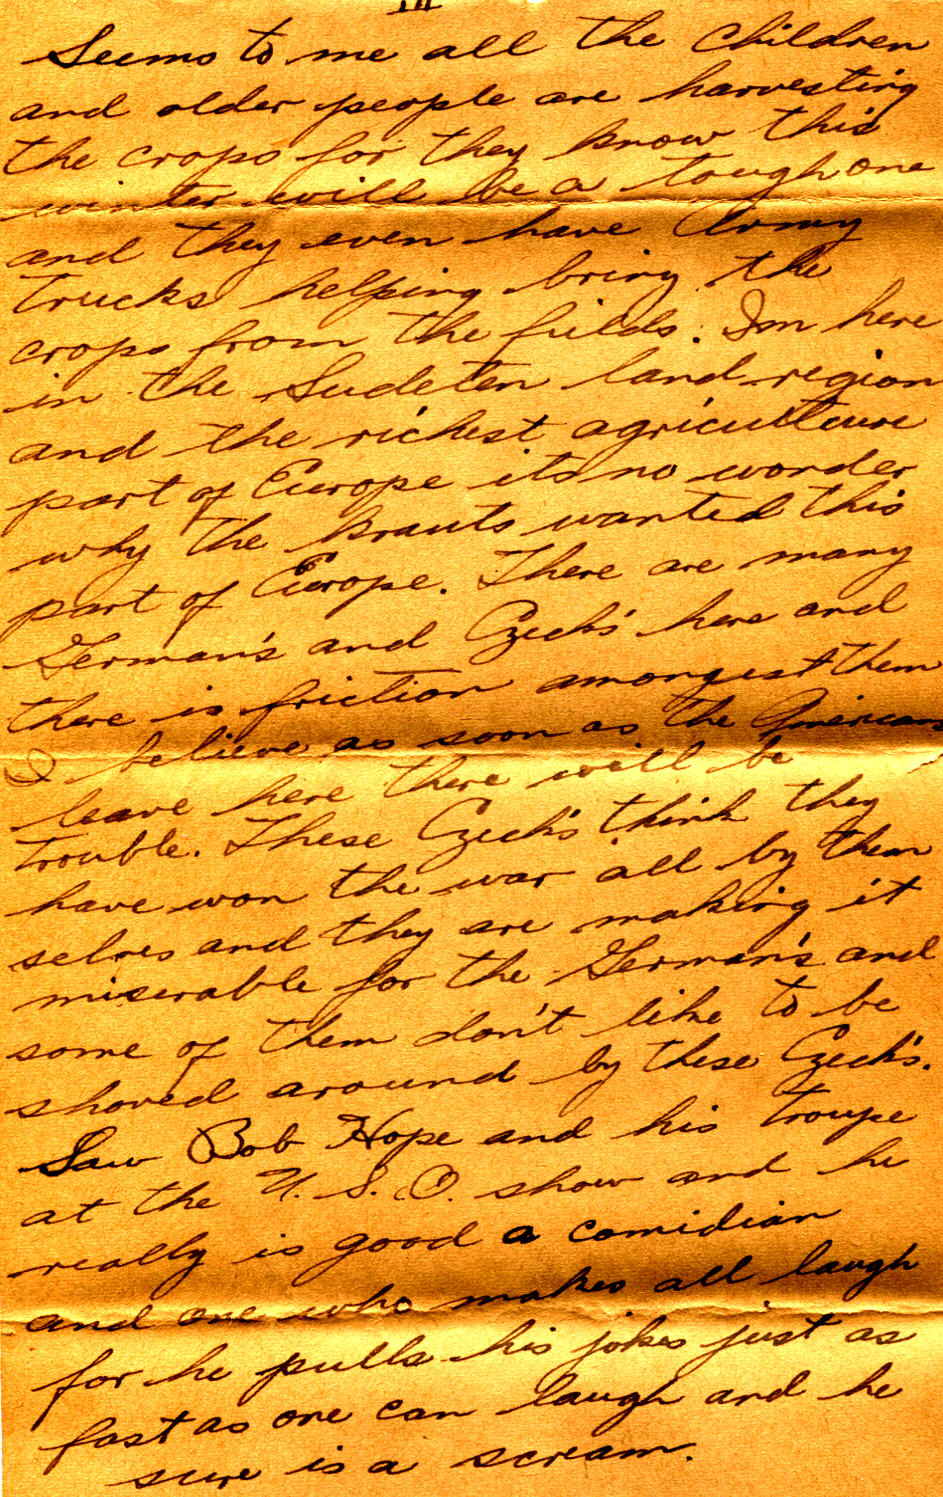 III
Seems to me all the children
and older people are harvesting
the crops for they know this
winter will be a tough one
and they even have Army
trucks helping bring the
crops from the fields. Im here
in the Sudeten land region
and the richest agriculture
part of Europe its no wonder
why the krauts wanted this
part of Europe. There are many
German's and Czech's here and
there is friction amongest them
I believe as soon as the Americans
leave here there will be
trouble. These Czech's think they
have won the war all by them
selves and they are making it
miserable for the German's and
some of them don't like to be
shoved around by these Czech's.
Saw Bob Hope and his troupe
at the U.S.O. show and he
really is good a comidian
and one who makes all laugh
for he pulls his jokes just as
fast as one can laugh and he
sure is a scream.